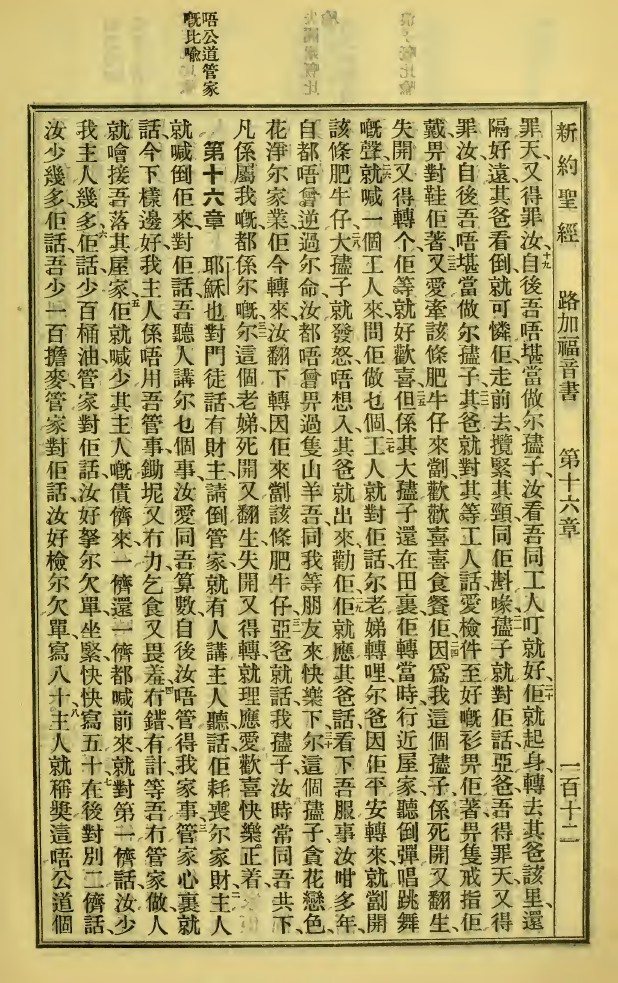 新約聖經 路加福音書 第十六章 一百十二
罪天、又得罪汝、十九自後吾唔堪當做尔𡥧子、汝看吾同工人叮就好、二十佢就起身轉去其爸該里、還
隔好遠、其爸看倒、就可憐佢、走前去攬緊其頸、同佢斟喙、二一𡥧子就對佢話、亞爸、吾得罪天、又得
罪汝、自後吾唔堪當做尔𡥧子、二二其爸就對其等工人話、愛檢件至好嘅衫畀佢著、畀隻戒指佢
戴、畀對鞋佢著、二三又愛牽該條肥牛仔來劏、歡歡喜喜食餐佢、二四因爲我這個𡥧子係死開又翻生、
失開又得轉个、佢等就好歡喜、二五但係其大𡥧子還在田裏、佢轉當時、行近屋家、聽倒彈唱跳舞
嘅聲、二六就喊一個工人來、問佢做乜個、二七工人就對佢話、尔老娣轉哩、尔爸因佢平安轉來、就劏開
該條肥牛仔、二八大𡥧子就發怒、唔想入、其爸就出來勸佢、二九佢就應其爸話、看下吾服事汝咁多年、
自都唔曾逆過尔命、汝都唔曾畀過隻山羊吾、同我等朋友來快樂下、三十尔這個𡥧子、貪花戀色、
花淨尔家業、佢今轉來、汝翻下轉因佢來劏該條肥牛仔、三一亞爸就話、我𡥧子、汝時常同吾共下、
凡係屬我嘅、都係尔嘅、三二尔這個老娣、死開又翻生、失開又得轉、就理應愛歡喜快樂正着、
第十六章 耶穌也對門徒話、有財主請倒管家、就有人講主人聽、話佢耗喪尔家財、二主人
就喊倒佢來、對佢話、吾聽人講尔乜個事、汝愛同吾算數、自後汝唔管得我家事、三管家心裏就
話、今下樣邊好、我主人係唔用吾管事、鋤坭又冇力、乞食又畏羞、四冇錯、有計、等吾冇管家做、人
就噲接吾落其屋家、五佢就喊少其主人嘅債儕來、一儕還一儕都喊前來、就對第一儕話、汝少
我主人幾多、六佢話、少百桶油、管家對佢話、汝好拏尔欠單、坐緊快快寫五十、七在後對別二儕話、
汝少幾多、佢話、吾少一百擔麥、管家對佢話、汝好檢尔欠單、寫八十、八主人就稱奬這唔公道個
唔公道管家
嘅比喻